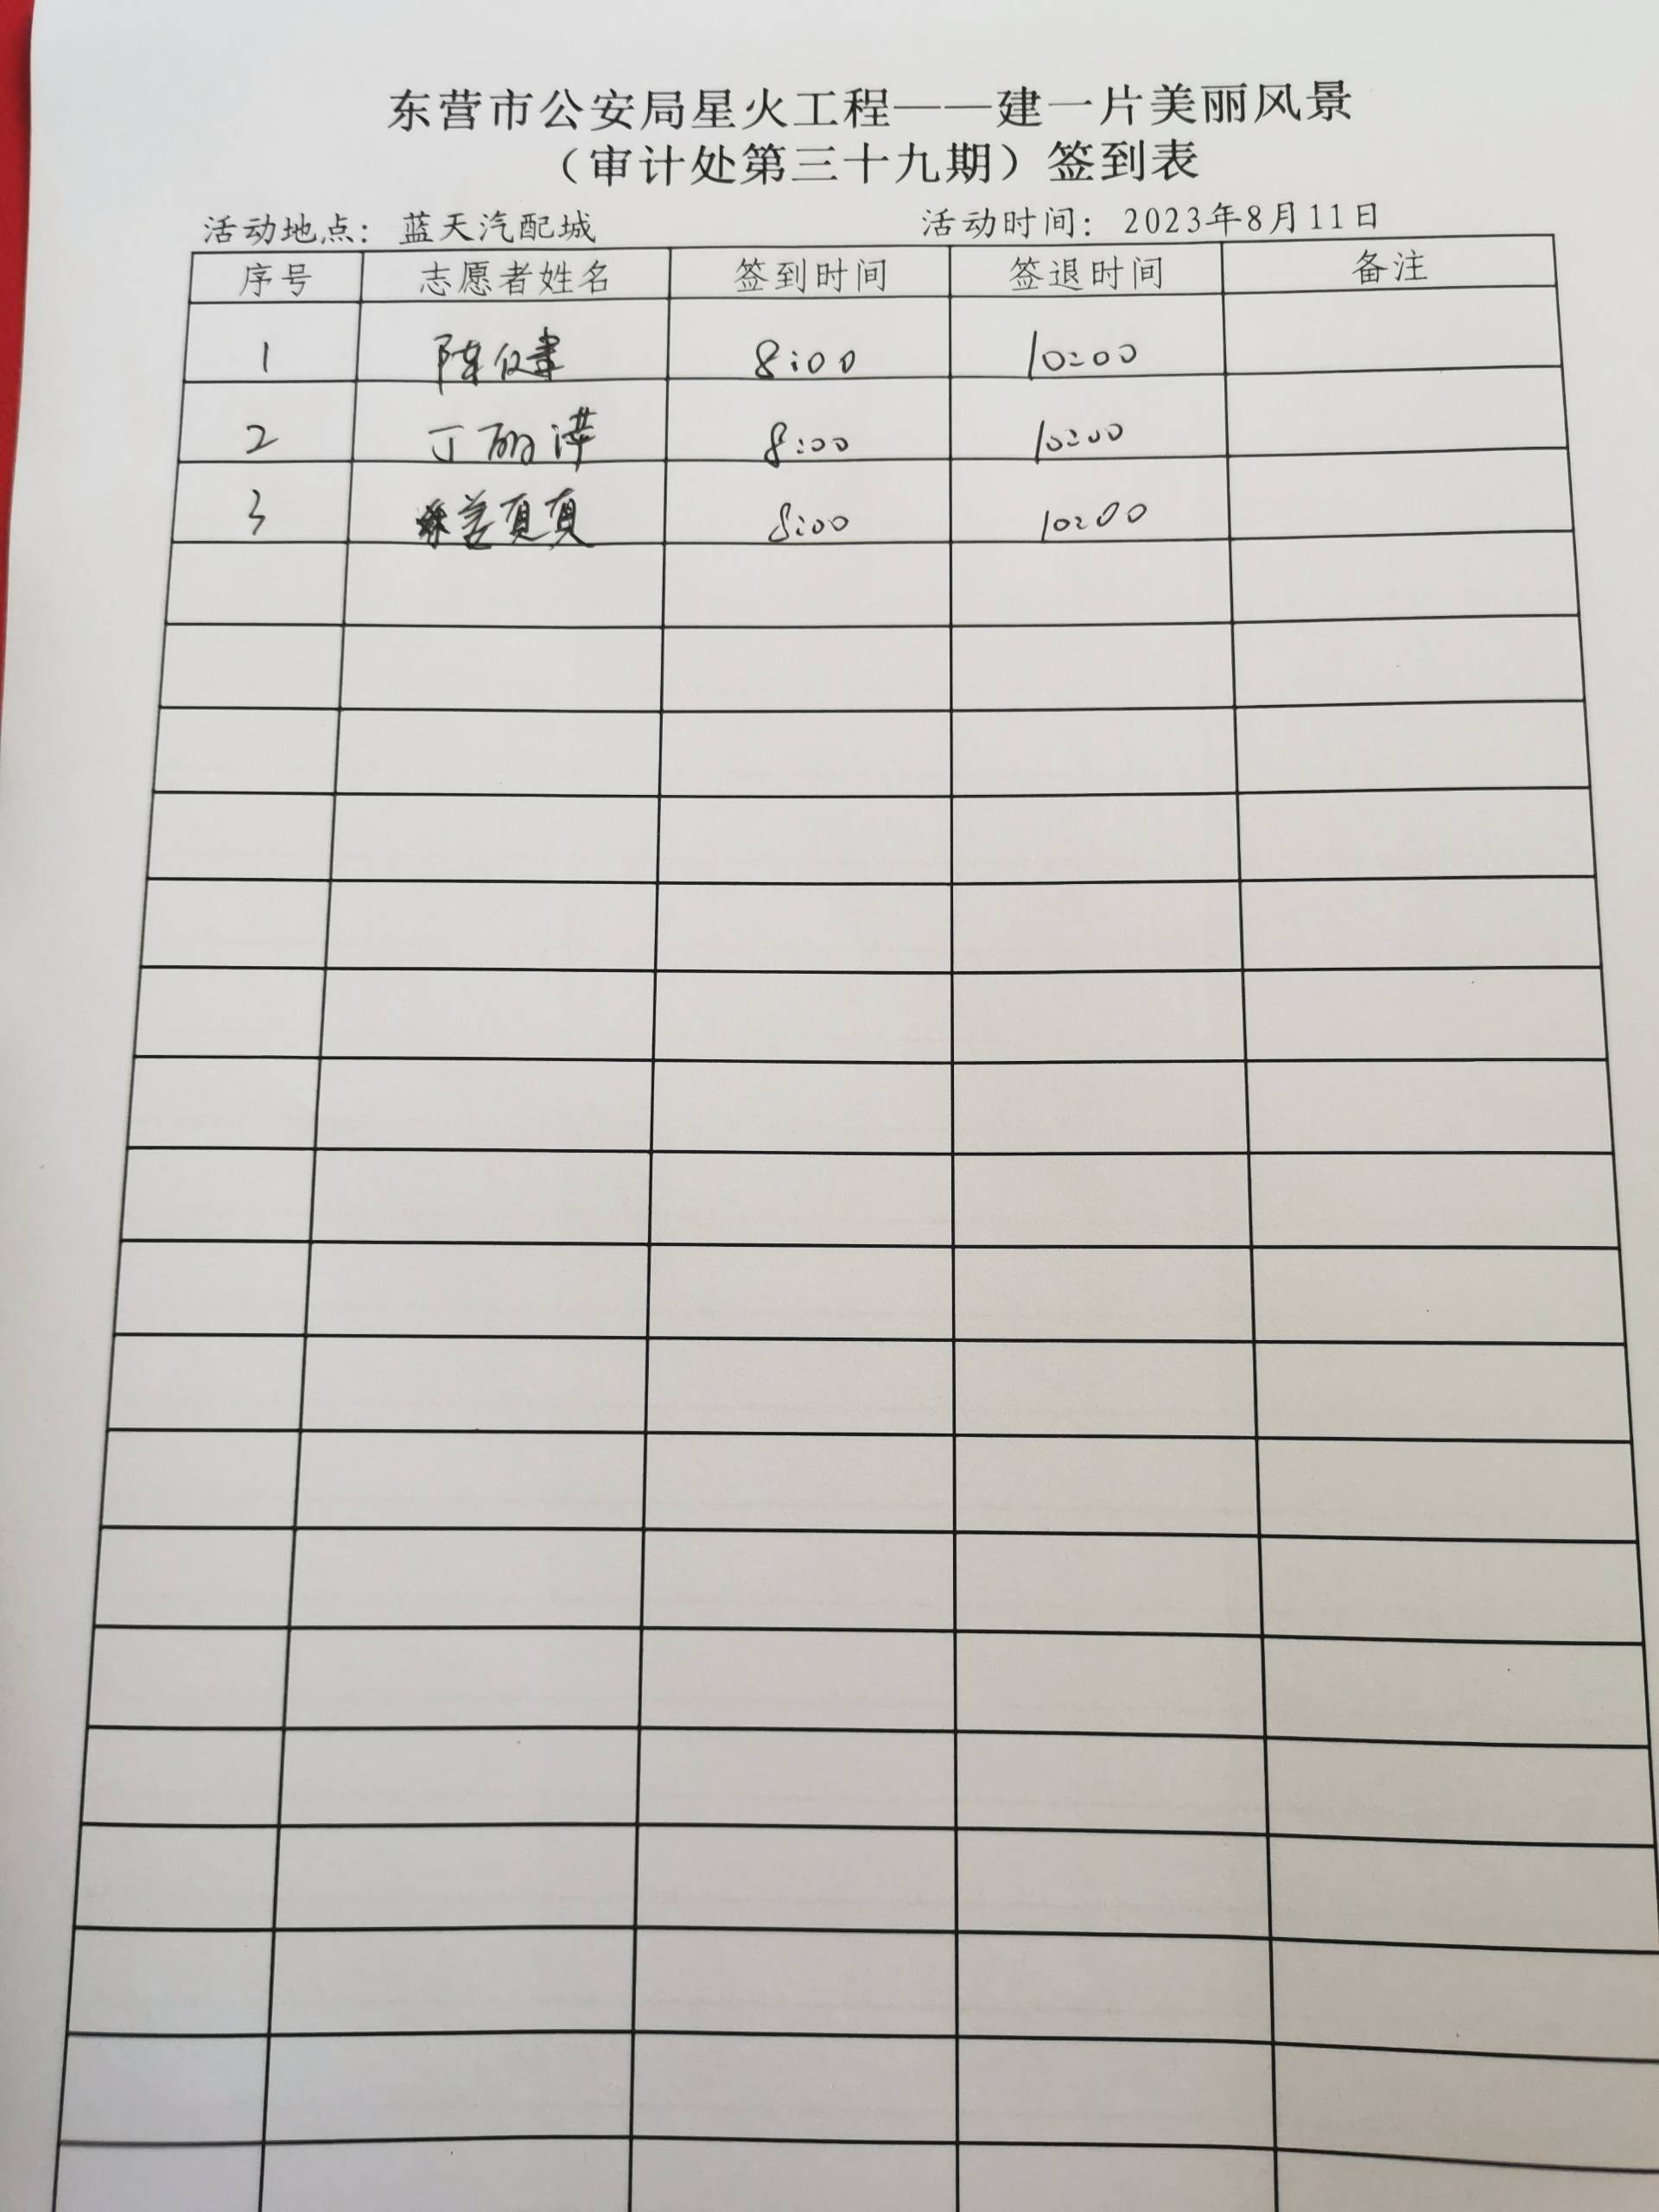 东营市公安局星火工程——建一片美丽风景
（审计处第三十九期）签到表
活动地点：蓝天汽配城 活动时间：2023年8月11日
序号 志愿者姓名 签到时间 签退时间 备注
1 陈 8:00 10:00
2 丁 8:00 10:00
3 8:00 10:00